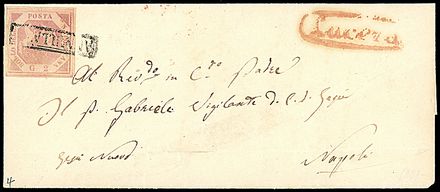 POSTA
ANNULLATO
G 2
Lucera
Al Rev.do in C.to Padre
Il P. Gabriele Vigilante de C. di Gesù
Gesù Nuovo
Napoli
4